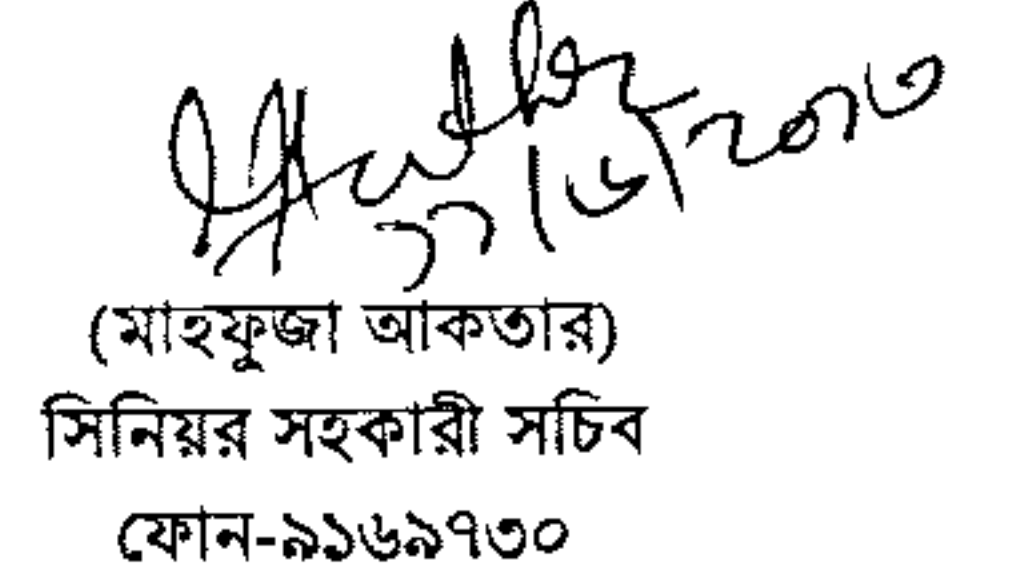 (মাহফুজা আকতার)
সিনিয়র সহকারী সচিব
ফোন-৯১৬৯৭৩০